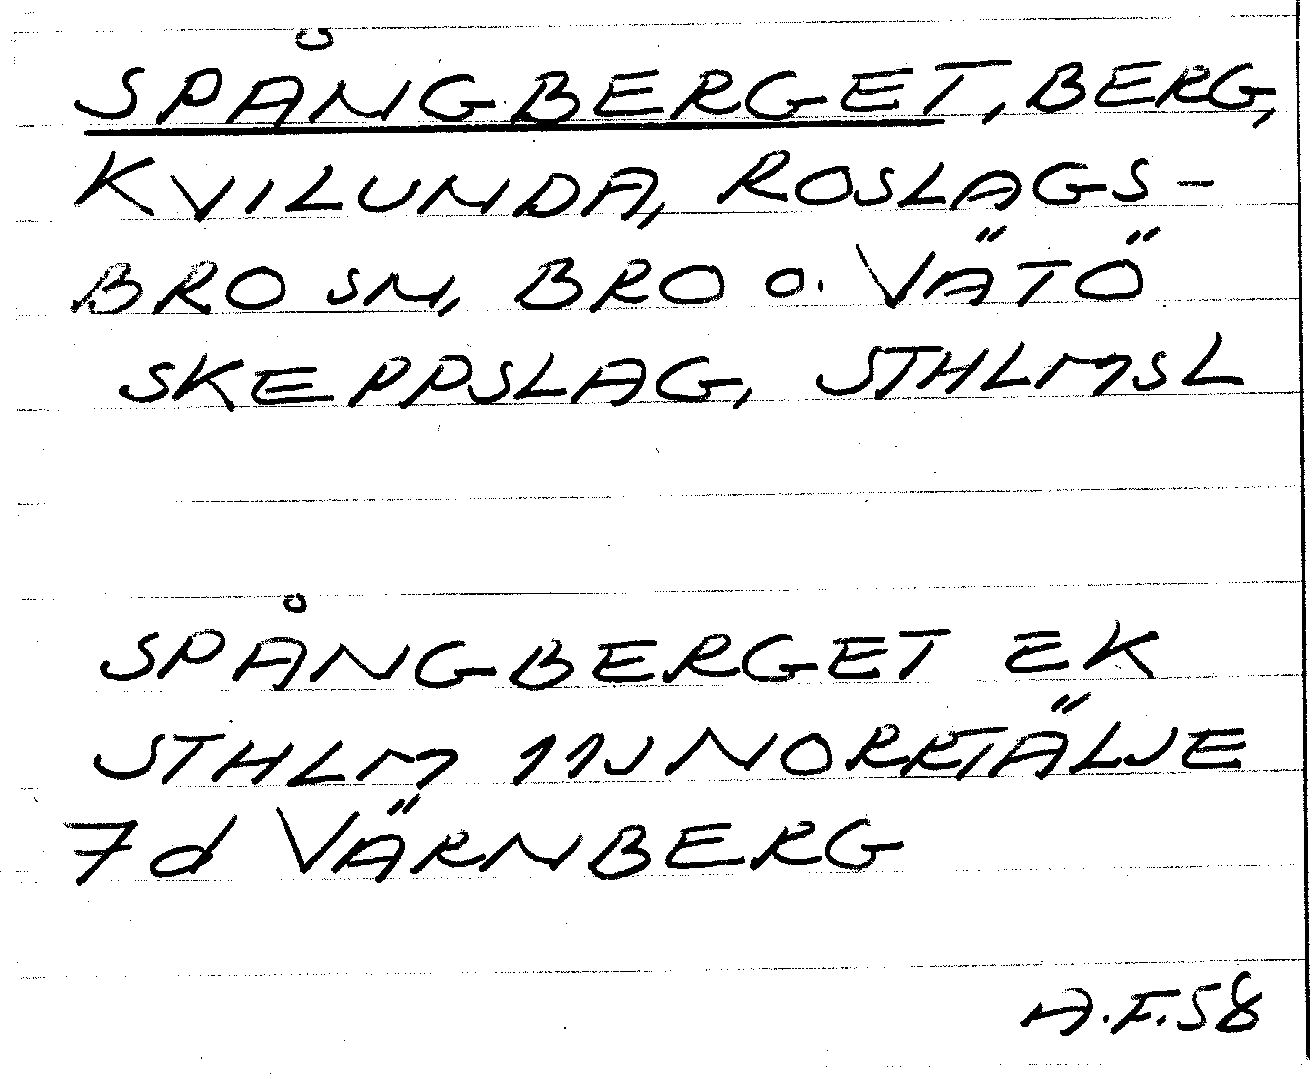 SPÅNGBERGET, BERG,
KVILUNDA, ROSLAGS-
BRO SN, BRO O. VÄTÖ
SKEPPSLAG, STHLMSL
SPÅNGBERGET EK
STHLM 11J NORRTÄLJE
7d VÄRNBERG
A.F.58